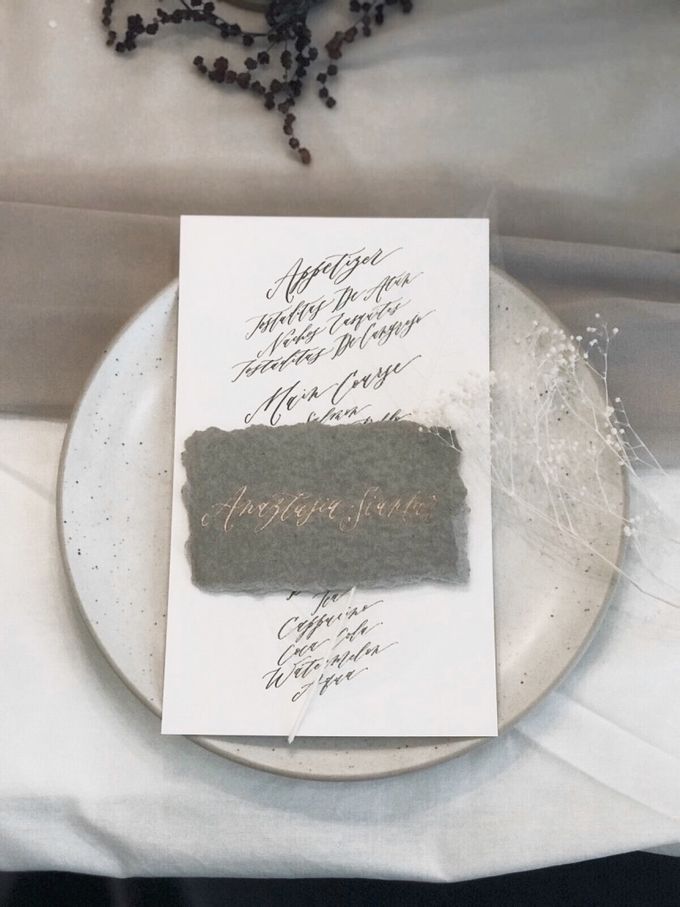 Appetizer
Tostaditas De Atun
Nachos Tasquitos
Tostaditas De Cangrejo
Main Course
Salmon
Anastasia
Tea
Cappucino
Coca Cola
Watermelon
Aqua